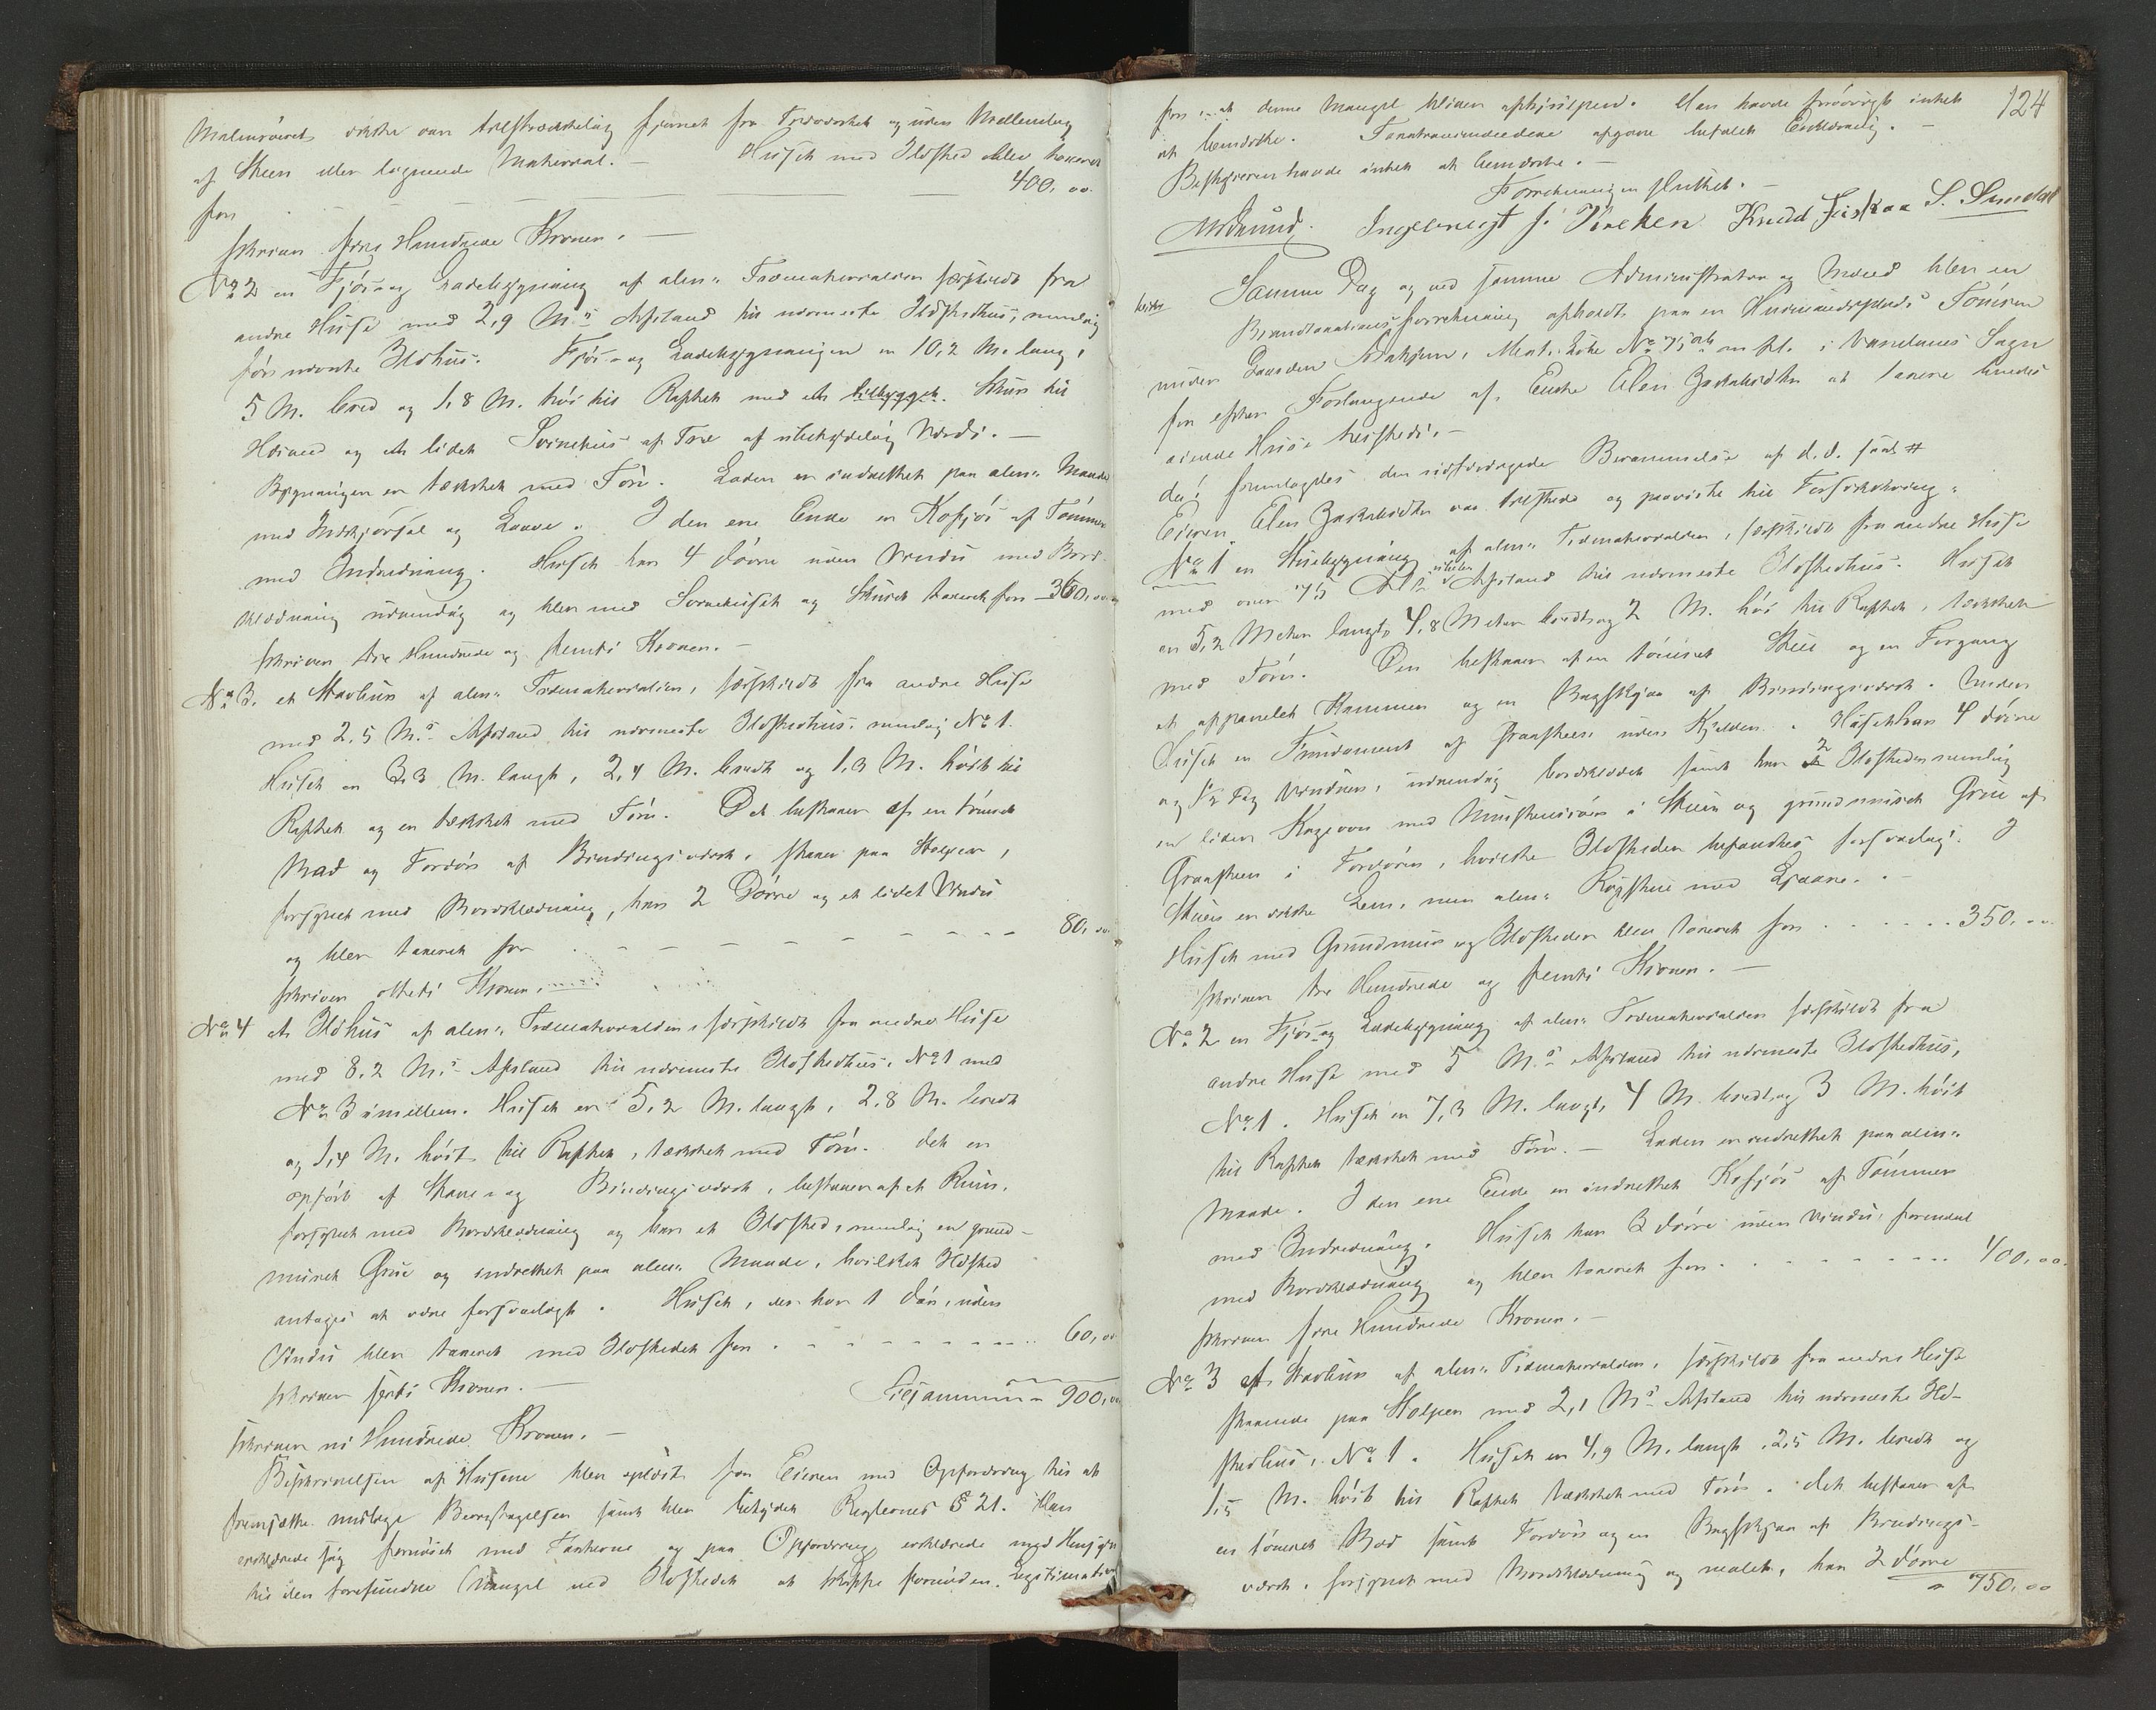 Malmrøret ikke var tilstrækkelig fjernet fra Træværket og uden Mellemlag
af Steen eller lignende Material. — Huset med Ildsted blev taxeret
for 400,00
skriver fire Hundrede Kroner. —
No 2 en Fjøs- og Ladebygning af alm: Træmaterialier særskildt fra
andre Huse med 2,9 M.s Afstand til nærmeste Ildstedhus, nemlig
før nævnte Ildhus. Fjøs- og Ladebygningen er 10,2 M. lang,
5 M. bred og 1,8 M. høi til Raftet med et tilbygget Skur til
og et lidet Svinehus af Træ af ubetydelig Værdi. —
Bygningen er tækket med Torv. Laden er indrettet paa alm: Maade
med Indkjørsel og Laave. I den ene Ende er Kofjøs af Tømmer
med Indredning. Huset har 4 Dørre uden Vindu med Bord-
klædning udvendig og blev med Svinehuset og Skuret taxeret for 360,00
skriver tre Hundrede og Kroner. —
No 3. et Stabur af alm: Træmaterialier, særskildt fra andre Huse
med 2,5 M.s Afstand til nærmeste Ildstedhus, nemlig No 1.
Huset er 3,3 M. langt, 2,4 M. bredt og 1,3 M. høit til
Raftet og er tækket med Torv. Det bestaaer af en tømret
Bod og Fordør af Bindingsværk, staaer paa Stolper,
forsynet med Bordklædning, har 2 Dørre og et lidet Vindu
og blev taxeret for 80,00
skriver otteti Kroner.
No 4 et Ildhus af alm: Træmaterialier, særskildt fra andre Huse
med 8,2 M.s Afstand til nærmeste Ildstedhus, No 1 med
No 3 imellem. Huset er 5,2 M. langt, 2,8 M. bredt
og 1,4 M. høit til Raftet, tækket med Torv. Det er
opført af Stav- og Bindingsværk, bestaaer af et Rum,
forsynet med Bordklædning og har et Ildsted, nemlig en grund-
muret Grue og indrettet paa alm: Maade, hvilket Ildsted
antages at være forsvarligt. Huset, der har 1 Dør, uden
Vindu blev taxeret med Ildstedet for 60,00
skriver sexti Kroner. — Tilsammen = 900,00
skriver ni Hundrede Kroner. —
Beskrivelsen af Husene blev oplæst for Eieren med Opfordring til at
fremsætte mulige Bemærkninger samt blev betydet Reglernes § 21. Han
erklærede sig fornøiet med Taxterne og paa Opfordring erklærede med Hensyn
til den forefundne Mangel ved Ildstedet at skaffe fornøden Legitimation
124
for at denne Mangel bliver afhjulpen. Han havde forøvrigt intet
at bemærke. Taxationsmændene afgave befalet Erklæring. —
Bestyreren havde intet at bemærke. —
Forretningen sluttet. —
Ingebregt J. Kirken Knudd S. Sundal
Samme Dag og ved samme Administrator og Mænd blev en
Brandtaxationsforretning afholdt paa en Husmandsplads Tomren
under Gaarden Matr. Løbe No 75 i Vandanes Sogn
for efter Forlangende af Enke Elen Zakariasdtr at taxere hendes
eiende Huse dersteds. —
der fremlagdes den udfærdigede Berammelse af d.d. saal. #
Eieren Elen Zakariasdtr var tilstede og paaviste til Forsikkring:
No 1 en Stuebygning af alm: Træmaterialier, særskildt fra andre Huse
med over 75 Afstand til nærmeste Ildstedhus. Huset
er 5,2 Meter langt, 4,8 Meter bredt og 2 M. høi til Raftet, tækket
med Torv. Den bestaaer af en tømret Stue og en Forgang
et oppanelet Kammer og en Bagskjaa af Bindingsværk. Under
Huset er Fundament af Graasteen uden Kjelder. Huset har 4 Dørre
og Vinduer, udvendig bordklædt samt har 2 Ildsteder nemlig
en liden Kogeovn med Muurstensrør i Stuen og grundmuret Grue af
Graasteen i Fordøren, hvilke Ildsteder befandtes forsvarlig. I
Stuen er ikke Lem, men alm: Røgstue med Ljaare. —
Huset med Grundmur og Ildsteder blev taxeret for 350,00
skriver tre Hundrede og femti Kroner. —
No 2 en Fjøs- og Ladebygning af alm: Træmaterialier særskildt fra
andre Huse med 5 M.s Afstand til nærmeste Ildstedhus,
No 1. Huset er 7,3 M. langt, 4 M. bredt og 3 M. høit
til Raftet tækket med Torv. — Laden er indrettet paa alm:
Maade. I den ene Ende er indrettet Kofjøs af Tømmer
med Indredning. Huset har 3 Dørre uden Vindu, forsynet
med Bordklædning og blev taxeret for 400,00
skriver fire Hundrede Kroner. —
No 3 et Stabur af alm: Træmaterialier, særskildt fra andre Huse
staaende paa Stolper med 2,1 M.s Afstand til nærmeste Ild-
stedhus, No 1. Huset er 4,9 M. langt, 2,5 M. bredt og
1,5 M. høit til Raftet tækket med Torv. Det bestaaer af
en tømret Bod samt Fordør og en Bagskjaa af Bindings-
værk, forsynet med Bordklædning og malet, har 2 Dørre
= 750,00